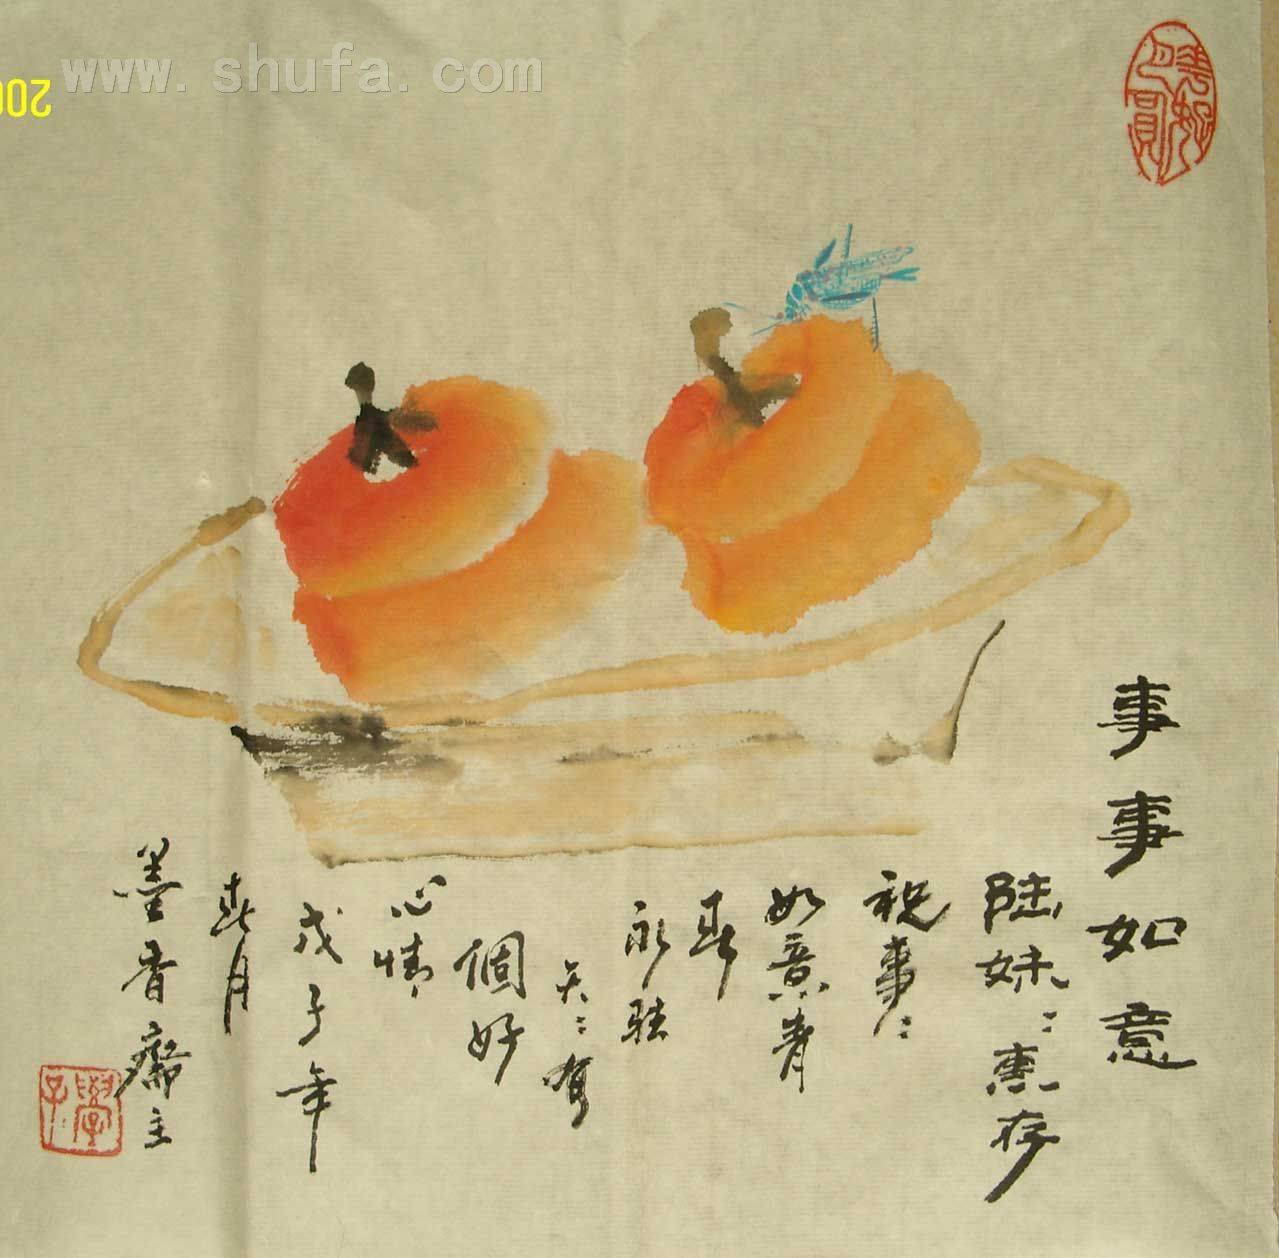 www.shufa.com
200
事事如意
陆妹::惠存
祝事::
如意青
春
永驻
天::有
個好
心情,
戊子年
春月
墨香齋主
學子